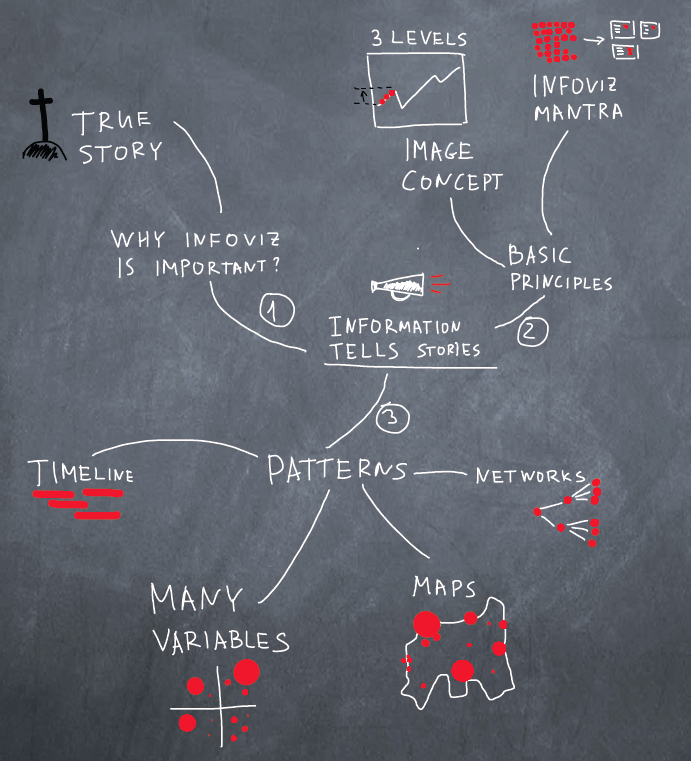 3 LEVELS
INFOVIZ
MANTRA
TRUE
STORY
IMAGE
CONCEPT
WHY INFOVIZ
IS IMPORTANT?
BASIC
PRINCIPLES
1
INFORMATION
TELLS STORIES
2
3
TIMELINE
PATTERNS
NETWORKS
MANY
VARIABLES
MAPS